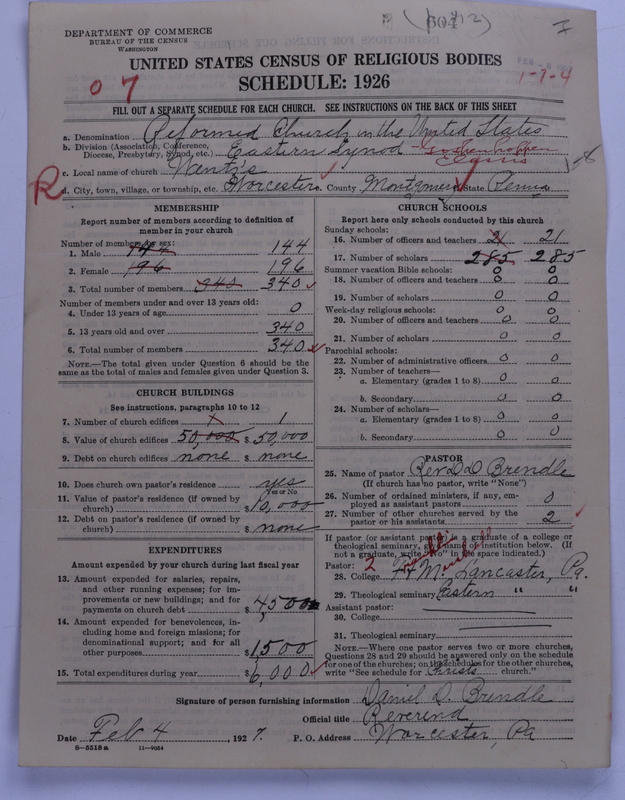 (604)
DEPARTMENT OF COMMERCE
BUREAU OF THE CENSUS
WASHINGTON
UNITED STATES CENSUS OF RELIGIOUS BODIES
SCHEDULE: 1926
0 7
1-7-4
FILL OUT A SEPARATE SCHEDULE FOR EACH CHURCH. SEE INSTRUCTIONS ON THE BACK OF THIS SHEET
a. Denomination Reformed Church in the United States
b. Division (Association, Conference, Diocese, Presbytery, Synod, etc.) Eastern Synod - Goshenhoppen Classis
c. Local name of church
R
d. City, town, village, or township, etc. Worcester e. County Montgomery State Penna
MEMBERSHIP
Report number of members according to definition of
member in your church
Number of members by sex:
1. Male 144 144
2. Female 196 196
3. Total number of members 340 340
Number of members under and over 13 years old:
4. Under 13 years of age 0
5. 13 years old and over 340
6. Total number of members 340
NOTE.—The total given under Question 6 should be
same as the total of males and females given under Question 3.
CHURCH BUILDINGS
See instructions, paragraphs 10 to 12
7. Number of church edifices 1 1
8. Value of church edifices 50,000 $ 50,000
9. Debt on church edifices none $ none
10. Does church own pastor's residence? yes
Yes or No
11. Value of pastor's residence (if owned by
church) $ 10,000
12. Debt on pastor's residence (if owned by
church) $ none
EXPENDITURES
Amount expended by your church during last fiscal year
13. Amount expended for salaries, repairs,
and other running expenses; for im-
provements or new buildings; and for
payments on church debt $ 4,500
14. Amount expended for benevolences, in-
cluding home and foreign missions; for
denominational support; and for all
other purposes $ 1,500
15. Total expenditures during year $ 6,000
CHURCH SCHOOLS
Report here only schools conducted by this church
Sunday schools:
16. Number of officers and teachers 21 21
17. Number of scholars 285 285
Summer vacation Bible schools: 0 0
18. Number of officers and teachers 0 0
19. Number of scholars 0 0
Week-day religious schools: 0 0
20. Number of officers and teachers 0 0
21. Number of scholars 0 0
Parochial schools:
22. Number of administrative officers 0 0
23. Number of teachers—
a. Elementary (grades 1 to 8) 0 0
b. Secondary 0 0
24. Number of scholars—
a. Elementary (grades 1 to 8) 0 0
b. Secondary 0 0
PASTOR
25. Name of pastor Rev D D Brendle
(If church has no pastor, write "None")
26. Number of ordained ministers, if any, em-
ployed as assistant pastors 0
27. Number of other churches served by the
pastor or his assistants 2
If pastor (or assistant pastor) is a graduate of a college or
theological seminary, give name of institution below. (If
not a graduate, write "No" in the space indicated.)
Pastor: 2
28. College F & M. Lancaster, Pa.
29. Theological seminary Eastern " "
Assistant pastor:
30. College
31. Theological seminary
NOTE.—Where one pastor serves two or more churches,
Questions 28 and 29 should be answered only on the schedule
for one of the churches; on the schedules for the other churches,
write "See schedule for Christs church."
Signature of person furnishing information Daniel D. Brendle
Official title Reverend
Date Feb 4, 1927. P. O. Address Worcester, Pa
8—5518 a 11—9054